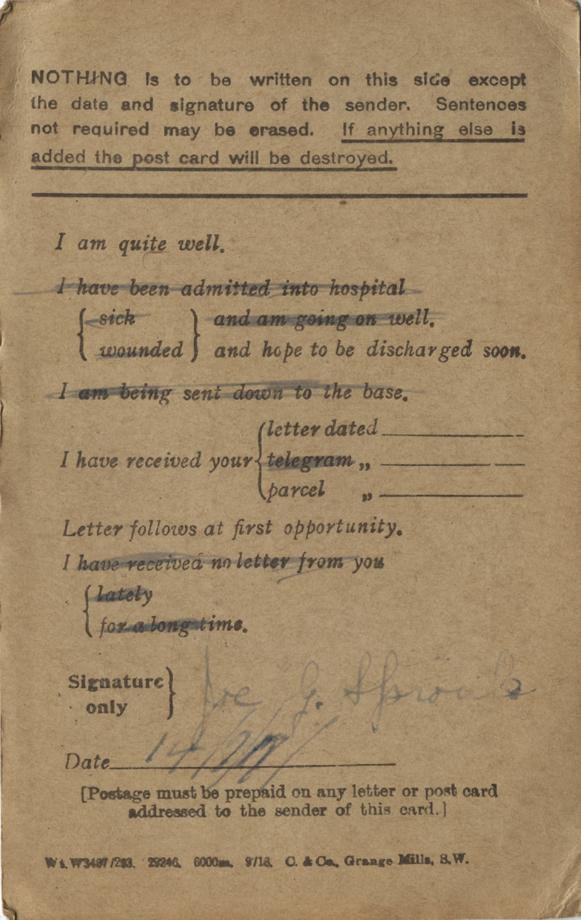 NOTHING is to be written on this side except
the date and signature of the sender. Sentences
not required may be erased. If anything else is
added the post card will be destroyed.
I am quite well.
I have been admitted into hospital
sick and am going on well.
wounded and hope to be discharged soon.
I am being sent down to the base.
letter dated
I have received your telegram „
parcel „
Letter follows at first opportunity.
I have received no letter from you
lately
for a long time.
Signature
only
Joe G.
Date
[Postage must be prepaid on any letter or post card
addressed to the sender of this card.]
29246. 6000m. 9/16. C. & Co., Grange Mills, S.W.